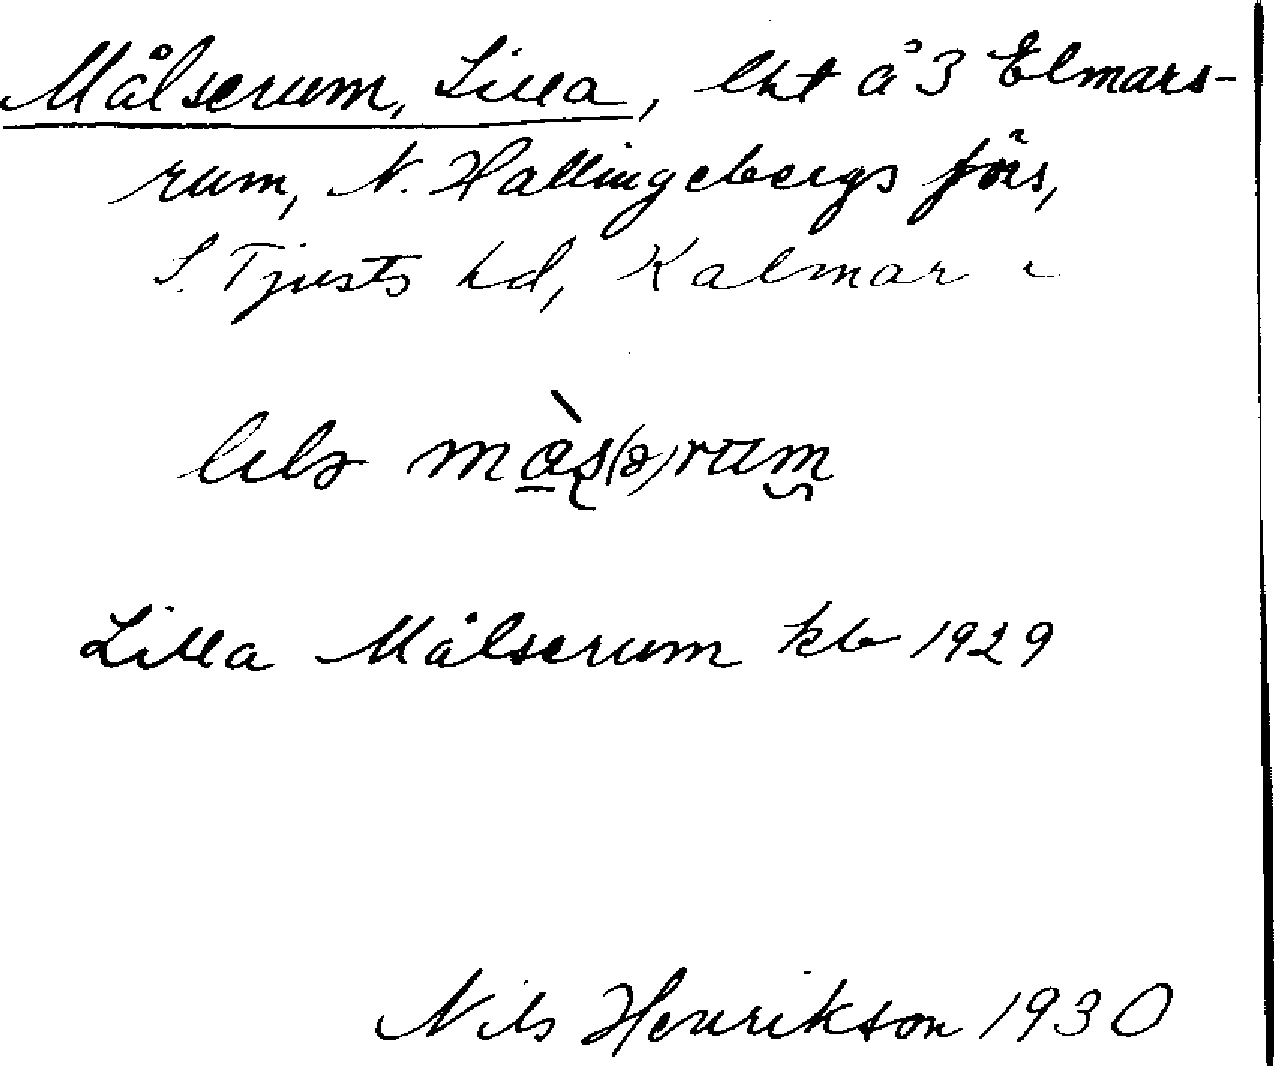 Målserum, Lilla, lht å 3 Elmars-
rum, N. Hallingebergs förs,
S. Tjusts hd, Kalmar
Lilla Målserum kb 1929
Nils Henrikson 1930